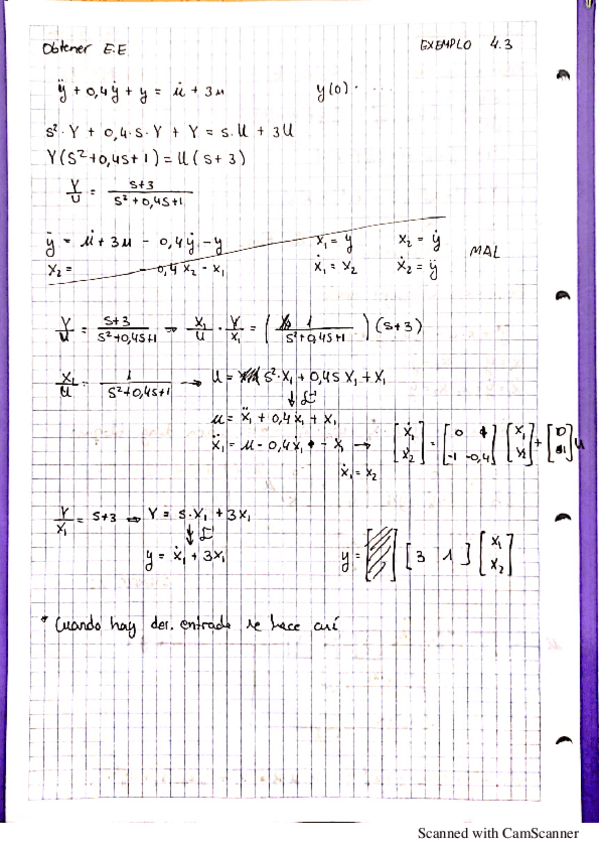 Obtener E.E EXEMPLO 4.3
ÿ + 0,4ẏ + y = u̇ + 3u y(0) · ....
s²·Y + 0,4·s·Y + Y = s.U + 3U
Y(s²+0,4s+1) = U(s+3)
Y/U = s+3 / s²+0,4s+1
ÿ = u̇ + 3u - 0,4ẏ - y x₁ = y x₂ = ẏ MAL
x₂ = - 0,4x₂ - x₁ ẋ₁ = x₂ ẋ₂ = ÿ
Y/U = s+3 / s²+0,4s+1 ⇒ X₁/U · Y/X₁ = ( 1 / s²+0,4s+1 ) (s+3)
X₁/U = 1 / s²+0,4s+1 → U = s²·X₁ + 0,4s X₁ + X₁
↓ L⁻¹
u = ẍ₁ + 0,4ẋ₁ + x₁
ẍ₁ = u - 0,4ẋ₁ - x₁ → [ẋ₁ ẋ₂] = [0 1 -1 -0,4] [x₁ x₂] + [0 1] u
ẋ₁ = x₂
Y/X₁ = s+3 ⇒ Y = s·X₁ + 3X₁
↓ L⁻¹
y = ẋ₁ + 3x₁ y = [3 1] [x₁ x₂]
* Cuando hay der. entrada se hace así
Scanned with CamScanner